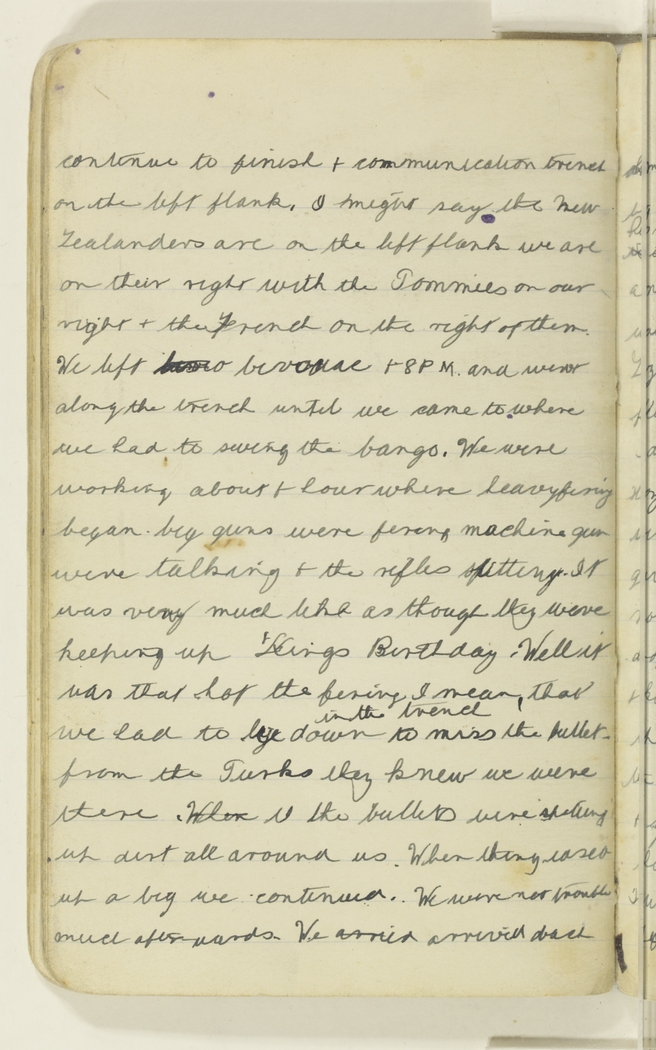 continue to finish + communication trench
on the left flank. I might say the New
Zealanders are on the left flank we are
on their right with the Tommies on our
right + the French on the right of them.
We left bivouac + 8 P M. and went
along the trench until we came to where
we had to swing the bango. We were
working about + hour where heavy firing
began. big guns were fireng machine gun
were talking + the rifles spitting. It
was very much like as though they were
keeping up Kings Birthday. Well it
was that hot the fireing I mean, that
in the trench
we had to lye down to miss the bullets
from the Turks they knew we were
there. When the bullets were spitting
up dirt all around us. When thing eased
up a big we continued.. We were not trouble
much afterwards. We arried arrived back